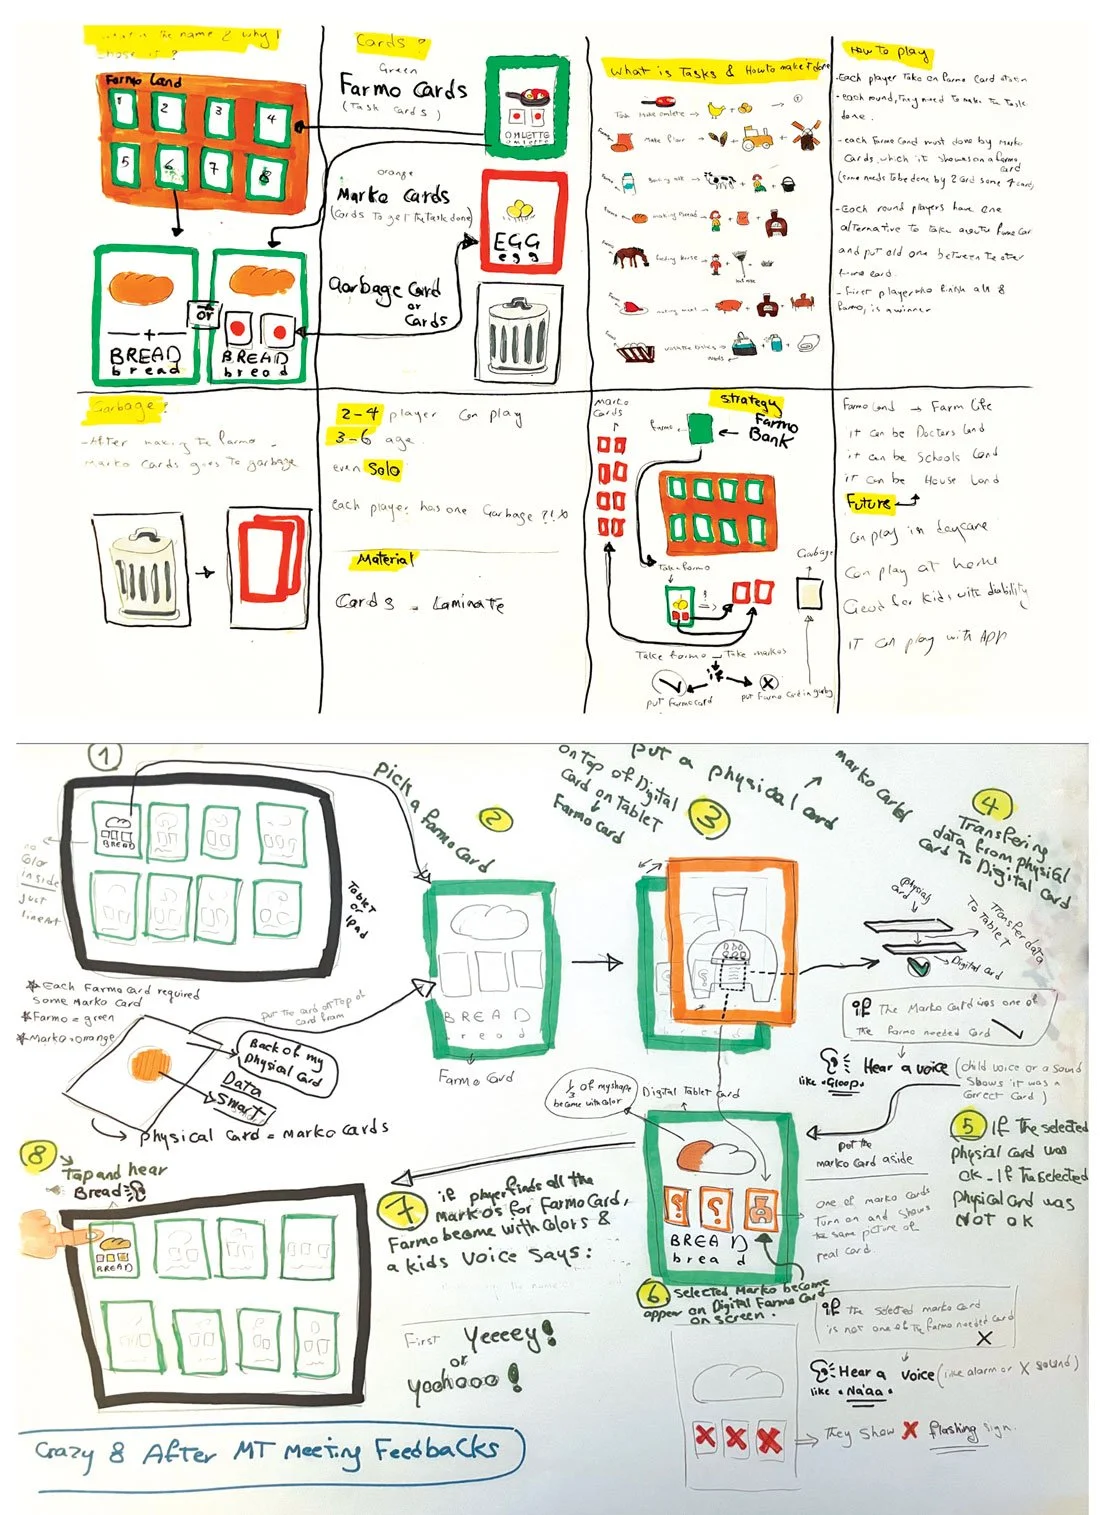 What is the name & why I
chose it?
Farmo Land
1
2
3
4
5
6
7
8
BREAD
bread
or
BREAD
bread
Cards?
Green
Farmo Cards
(Task Cards)
OMLETTE
omlette
orange
Marko Cards
(Cards to get the task done)
EGG
egg
Garbage Card
or
Cards
What is Tasks & How to make it done
Task
How to play
- each round, they need to make the task
done.
- each Farmo Card must done by Marko
Cards, which it shows on a farmo
card
(some needs to be done by 2 card some 4 card)
- Each round players have one
alternative to take another Farmo Car
and put old one between the other
farmo card.
- First player who finish all 8
Farmo, is a winner
Garbage?
- After making the farmo -
Marko Cards goes to garbage
2-4 player can play
3-6 age.
even Solo
each player has one Garbage ?!
Material
Cards = Laminate
Marko
Cards
Strategy
Farmo
Farmo
Bank
Take farmo
Garbage
Take farmo → Take markos
if
put farmo card
put Farmo Card in garbg
Farmo Land → Farm Life
it can be Doctors Land
it can be Schools Land
it can be House Land
Future
can play in daycare
Can play at home
Good for kids with diability
IT can play with APP
1
BREAD
no
Color
inside
just
lineart
Tablet
or
Ipad
Each Farmo Card required
some Marko Card
Farmo = green
Marko = orange
pick a Farmo Card
put the card on Top of
card from
Back of my
physical Card
Data
Smart
physical Card = Marko cards
2
BREAD
bread
Farmo Card
put a physical card
marko card
on Top of Digital
Card on Tablet
Farmo Card
3
4
Transfering
data from physical
Card to Digital card
physical
card
Transfer data
To Tablet
Digital card
if The Marko Card was one of
the farmo needed Card
Hear a voice (child voice or a sound
Shows it was a
Correct Card)
like "Gloop"
5 If the selected
physical card was
ok - If the selected
physical card was
NOT ok
put the
marko Card aside
1/3 of my shape
become with color
Digital Tablet Card
? ?
BREAD
bread
one of marko Cards
Turn on and shows
the same picture of
real card.
6 Selected Marko become
appear on Digital Farmo Card
on screen.
if the selected marko card
is not one of the Farmo needed Card
X
Hear a voice (like alarm or X sound)
like "Na'aa"
They show X flashing sign.
7 if player finds all the
Marko's for Farmo Card,
Farmo become with colors &
a kids voice says:
First Yeeeey!
or
yoohooo!
8
Tap and hear
Bread
BREAD
Crazy 8 After MT Meeting Feedbacks